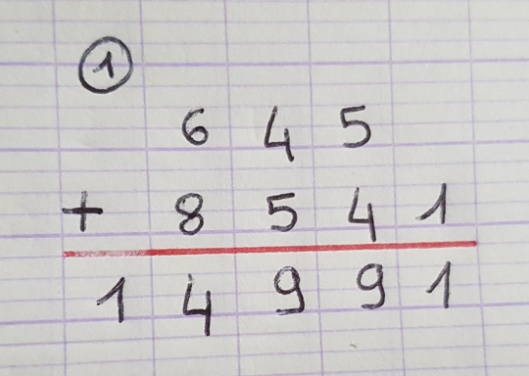 1
6 4 5
+ 8 5 4 1
1 4 9 9 1